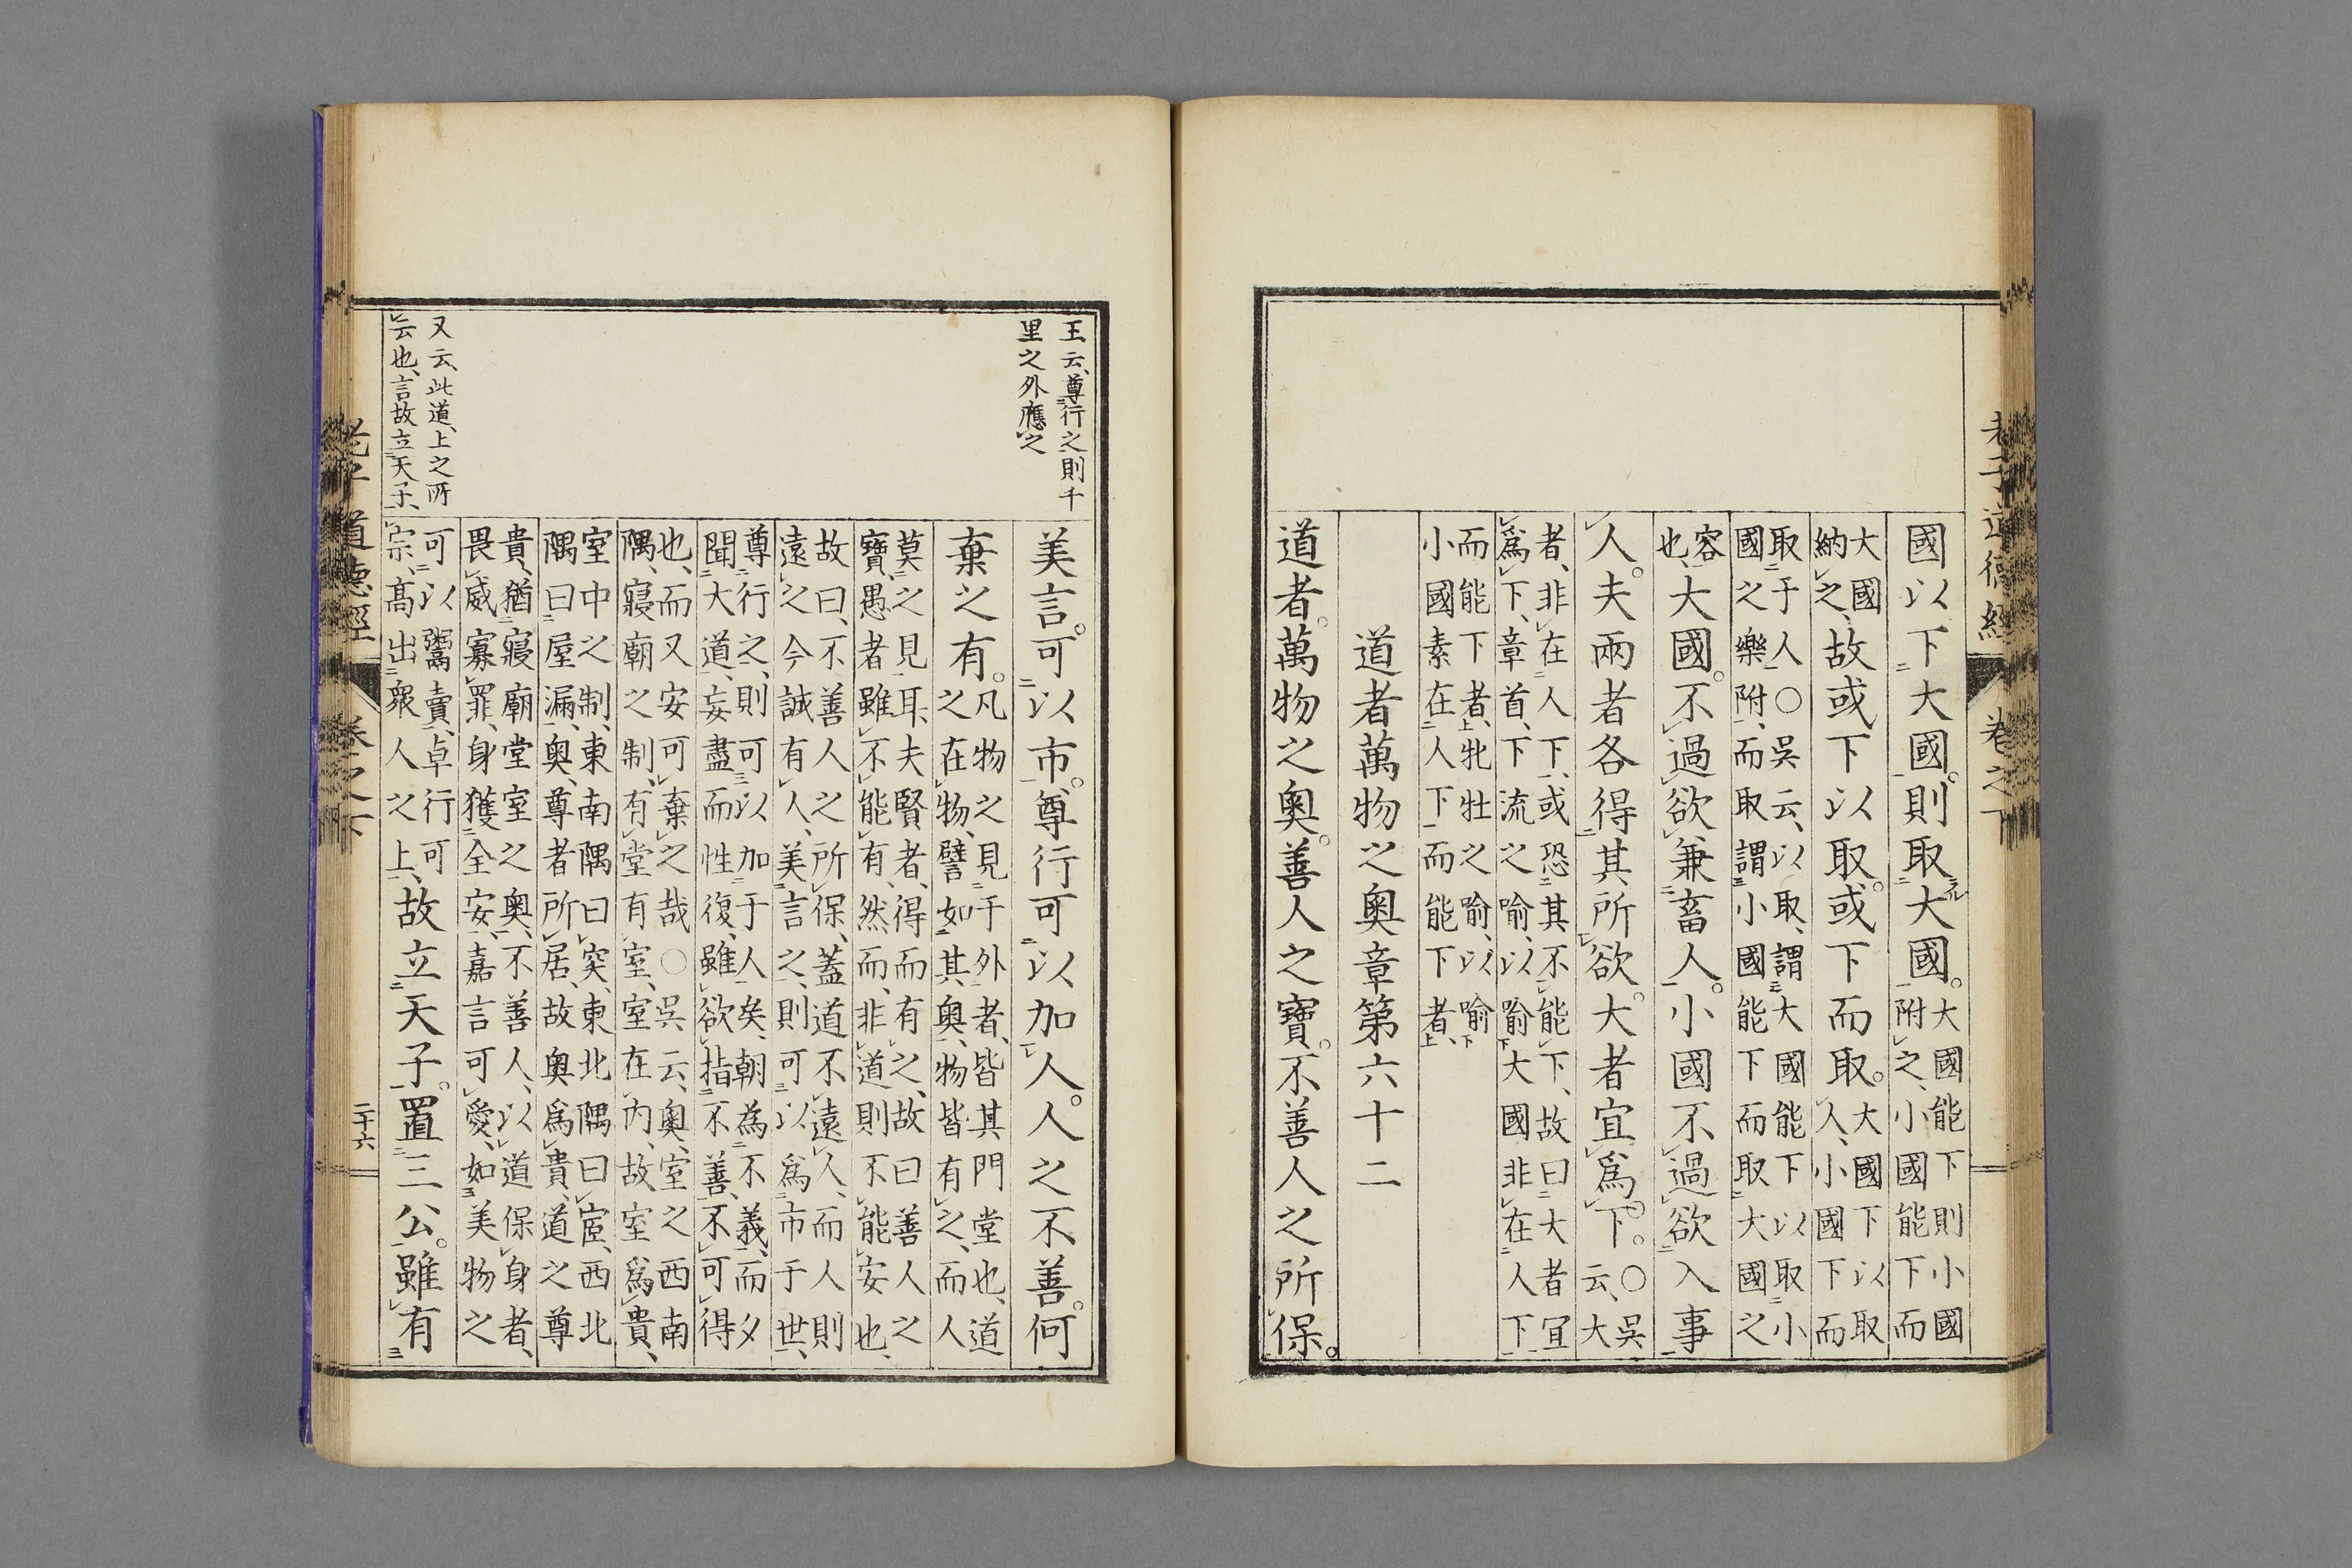 老子道德經 卷之下
國以下大國。則取大國。大國能下則小國
附之、小國能下而
大國納之、故或下以取。或下而取。大國下以取
人、小國下而
取于人〇吳云、以取、謂大國能下以取小
國之樂附、而取謂小國能下而取大國之
容也、大國。不過欲兼畜人。小國不過欲入事
人。夫兩者各得其所欲。大者宜爲下。〇吳
云、大
者、非在人下、或恐其不能下、故曰大者宜
爲下、章首、下流之喻、以喻大國非在人下
而能下者、牝牡之喻、以喻
小國素在人下而能下者、
道者萬物之奧章第六十二
道者。萬物之奧。善人之寶。不善人之所保。
王云、尊行之則千
里之外應之
美言。可以市。尊行可以加人。人之不善。何
棄之有。凡物之見于外者、皆其門堂也、道
之在物、譬如其奧、物皆有之、而人
莫之見耳、夫賢者、得而有之、故曰善人之
寶、愚者雖不能有、然而、非道則不能安也、
故曰、不善人之所保、蓋道不遠人、而人則
遠之今誠有人、美言之、則可以爲市于世、
尊行之、則可以加于人矣、朝為不義、而夕
聞大道、妄盡而性復、雖欲指不善、不可得
也、而又安可棄之哉〇吳云、奧、室之西南
隅、寢廟之制、有堂有室、室在內、故室爲貴、
室中之制、東南隅曰窔、東北隅曰宧、西北
隅曰屋漏、奧、尊者所居、故奧爲貴、道之尊
貴、猶寢廟堂室之奧、不善人、以道保身者、
畏威寡罪、身獲全安、嘉言可愛、如美物之
又云、此道、上之所
云也、言故立天子、
可以鬻賣、卓行可
宗、高出衆人之上、故立天子。置三公。雖有
老子道德經 卷之下 二十六